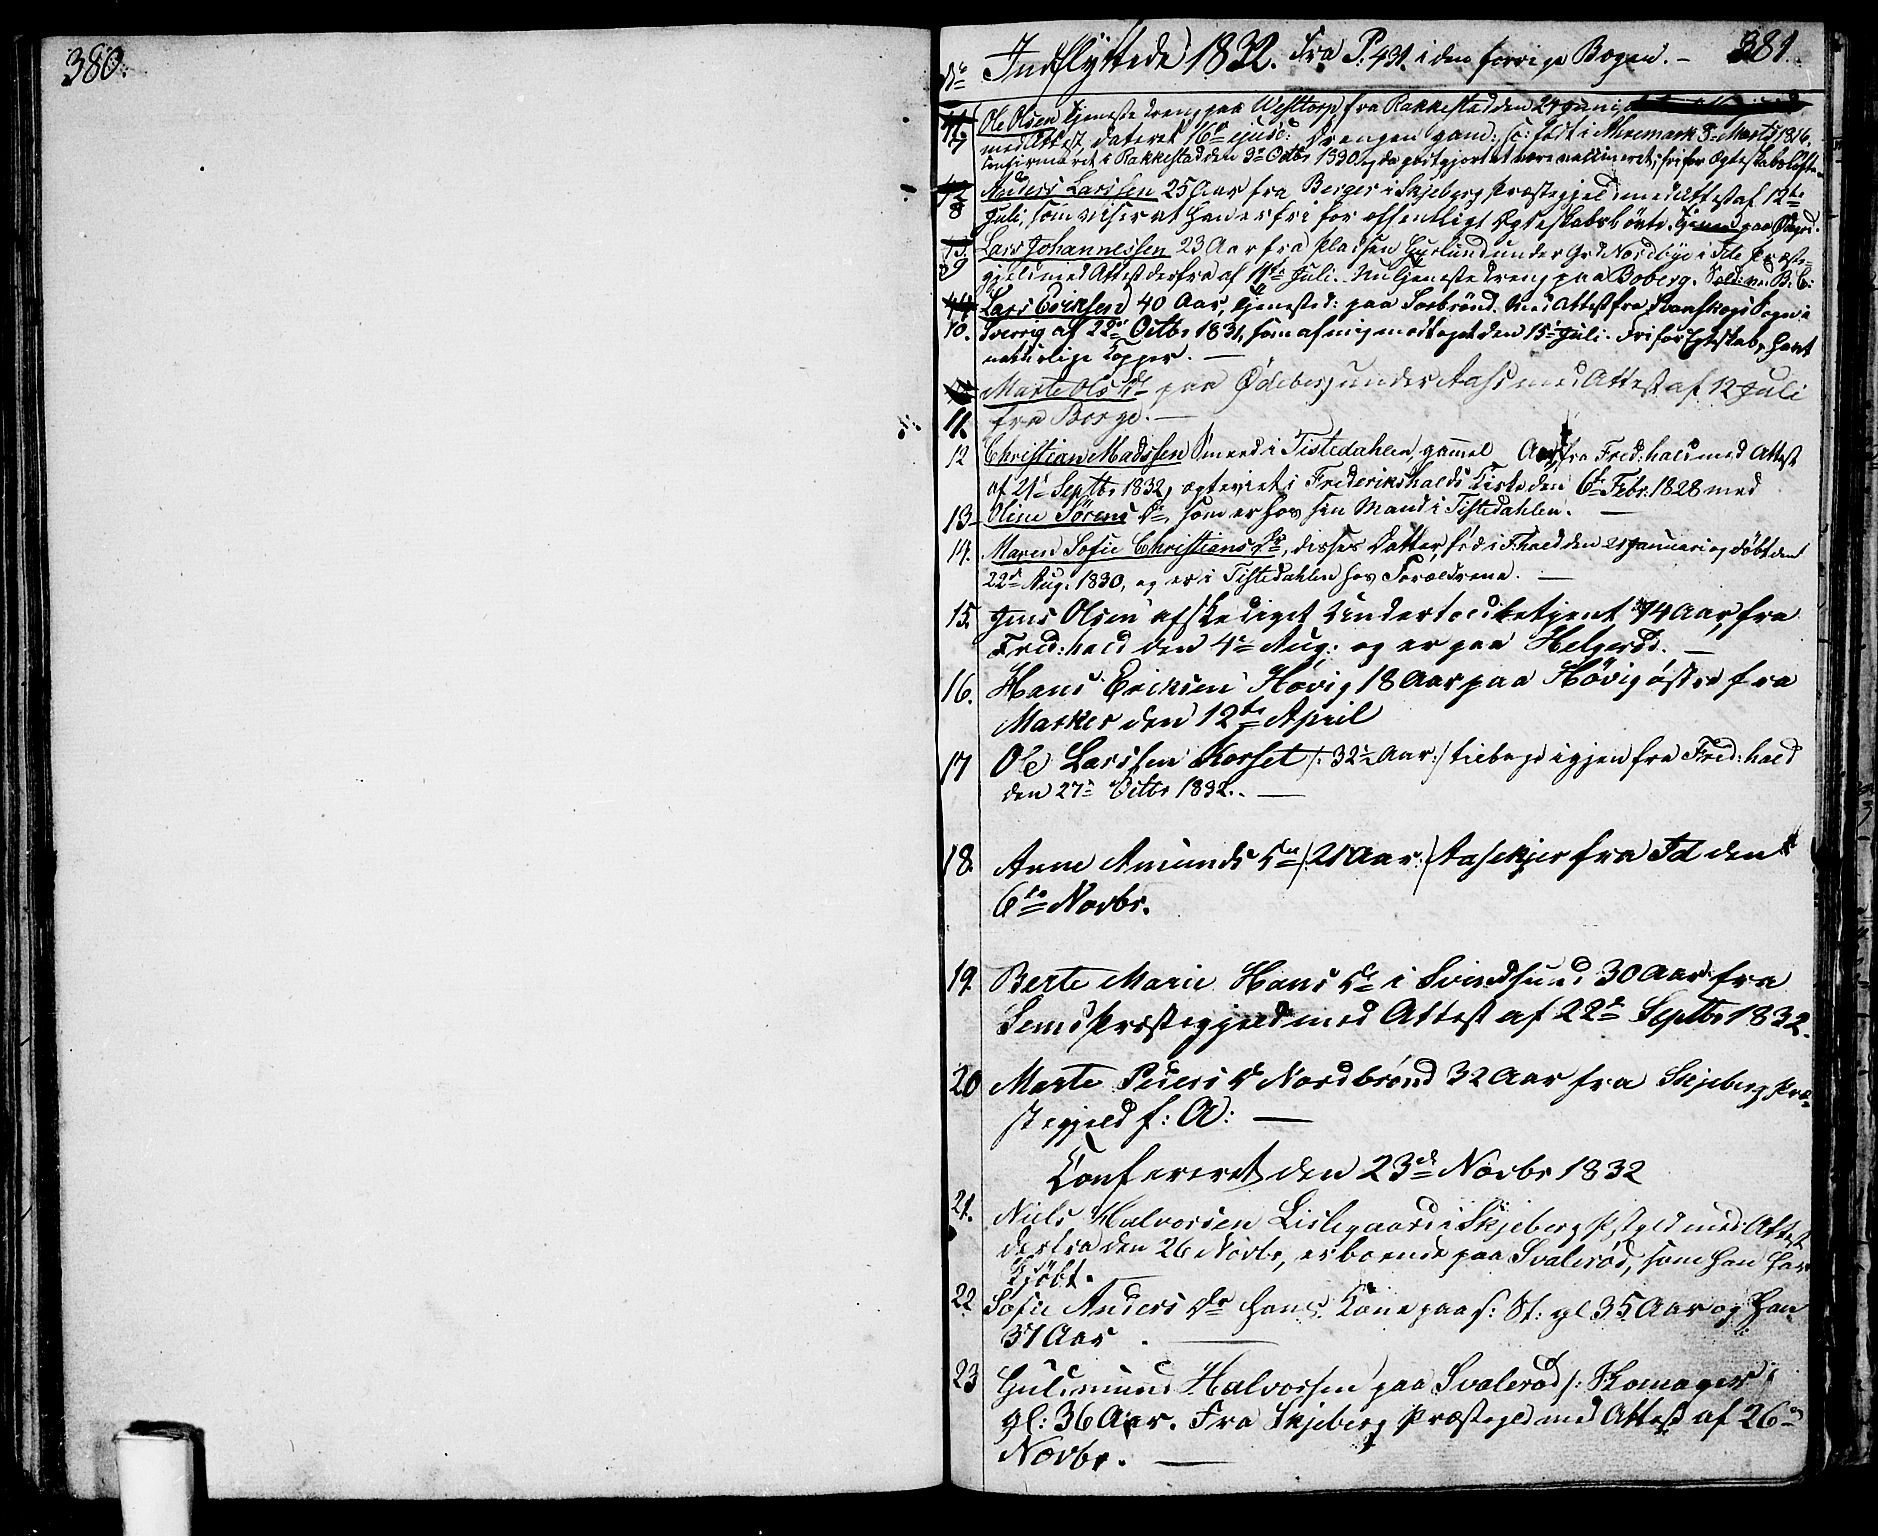 380.
381.
No Indflyttede 1832. Fra P. 431. i den forrige Bogen. –
7 Ole Olsen Tjenestedreng paa Westtorp fra Rakkestad den 24 Juni
med Attest dateret 16de ejusd: Drengen gam: fø: født i Aremark 3die Marts 1816.
Confirmeret i Rakkestad den 3die Octbr 1830 godtgjort at være vaccineret, fri for Ægteskabsløfte.
8 Anders Larssen 25 Aar fra Berger i Skjeberg Præstegjeld med Attest af 12te
Juli, som viser at han er fri for offentligt Ægteskabsløfte. Tjener paa
9 Lars Johannessen 23 Aar fra Pladsen under Grd Nordbye i Ide Præste-
gjeld med Attest derfra af 11te Juli. Nu Tjenestedreng paa Boberg.
10. Lars Ericksen 40 Aar, Tjenested: paa Torbrønd. Med Attest fra Svanskogs Sogn i
Sverrig af 22de Octbr 1831, som af mig modtoget den 15de Juli. Fri for Egteskab, havt
naturlige Kopper. —
11. Marte Ols Dr paa Ødeberg under Aass med Attest af 12 Juli
fra Borge. —
12 Christian Madssen Smed i Tistedahlen, gammel Aar, fra Fred:hald med Attest
af 21de Septbr 1832, egteviet i Frederikshalds Kirke den 6te Febr. 1828 med
13. Oline Sørens Dr, som er hos sin Mand i Tistedahlen. —
14. Maren Sofie Christians Dr, disses Datter, fød i F:hald den 21 Januari og døbt den
22de Aug. 1830, og er i Tistedahlen hos Forældrene. —
15. Jens Olsen afskediget Undertoldbetjent 74 Aar, fra
Fred:hald den 4de Aug: og er paa Helgerød. —
16. Hans Ericksen Høvig 18 Aar paa Høvig østre fra
Marker den 12te April
17 Ole Larssen Korset /: 32½ Aar :/ tilbage igjen fra Fred:hald
den 27de Octbr 1832. —
18. Anne Amunds Dr /: 21 Aar :/ Aaskjer fra Id den
6te Novbr.
19. Berte Marie Hans Dr i Svindsund 30 Aar fra
Sems Præstegjeld med Attest af 22de Septbr 1832.
20 Marte Peders D Nordbrønd 32 Aar fra Skjeberg Præ-
stegjeld f: A: —
Confereret den 23de Novbr 1832
21. Niels Halvorsen Lislegaard i Skjeberg Pstgeld med Attest
derfra den 26 Novbr, er boende paa Svalerød, som han har
kjøbt.
22 Sofie Anders Dr hans Kone paa s: St: gl 35 Aar og han
37 Aar. —
23 Guldmund Halvorsen paa Svalerød /: Skomager
gl: 36 Aar. Fra Skjeberg Præstegld med Attest af 26de
Novbr. —